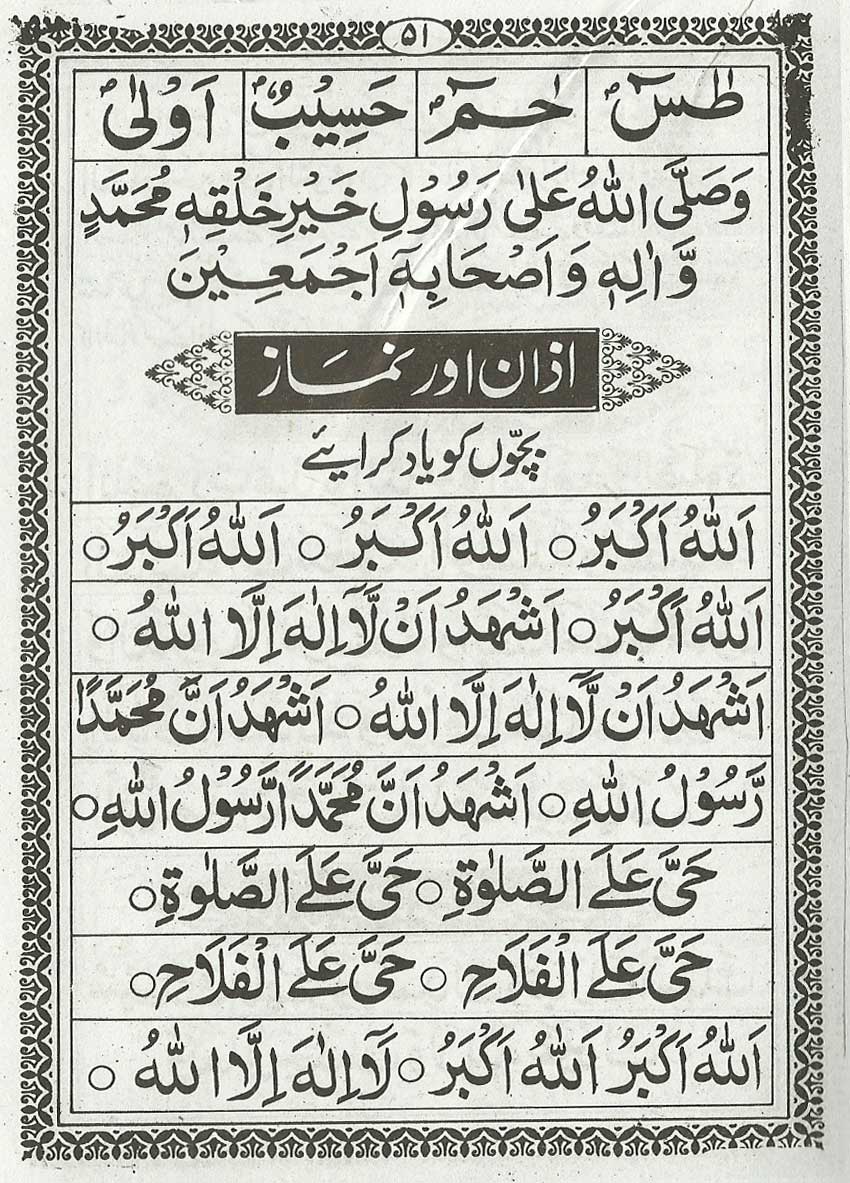 ۵۱
طٰسٓ حٰـمٓ حَسِيْبٌ اَوْلٰى
وَصَلَّى اللّٰهُ عَلٰى رَسُوْلِ خَيْرِ خَلْقِهٖ مُحَمَّدٍ
وَّاٰلِهٖ وَاَصْحَابِهٖٓ اَجْمَعِيْنَ
اذان اور نماز
بچّوں کو یاد کرایئے
اَللّٰهُ اَكْبَرُ ○ اَللّٰهُ اَكْبَرُ ○ اَللّٰهُ اَكْبَرُ ○
اَللّٰهُ اَكْبَرُ ○ اَشْهَدُ اَنْ لَّآ اِلٰهَ اِلَّا اللّٰهُ ○
اَشْهَدُ اَنْ لَّآ اِلٰهَ اِلَّا اللّٰهُ ○ اَشْهَدُ اَنَّ مُحَمَّدًا
رَّسُوْلُ اللّٰهِ ○ اَشْهَدُ اَنَّ مُحَمَّدًا رَّسُوْلُ اللّٰهِ ○
حَىَّ عَلَى الصَّلٰوةِ ○ حَىَّ عَلَى الصَّلٰوةِ ○
حَىَّ عَلَى الْفَلَاحِ ○ حَىَّ عَلَى الْفَلَاحِ ○
اَللّٰهُ اَكْبَرُ اَللّٰهُ اَكْبَرُ ○ لَآ اِلٰهَ اِلَّا اللّٰهُ ○